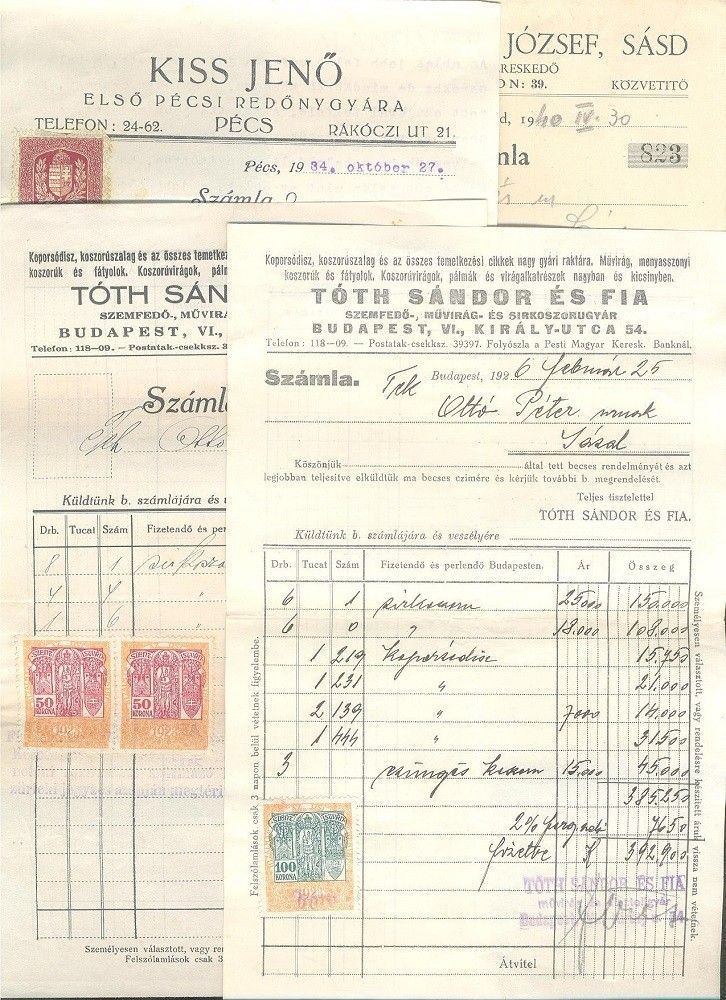 KISS JENŐ
ELSŐ PÉCSI REDŐNYGYÁRA
TELEFON: 24-62. PÉCS RÁKÓCZI UT 21.
Pécs, 1934. október 27.
Számla
JÓZSEF, SÁSD
RESKEDŐ
N: 39. KÖZVETITŐ
d, 1940 IV. 30
mla 823
Koporsódisz, koszorúszalag és az összes temetkez
koszorúk és fátyolok. Koszorúvirágok, pálm
TÓTH SÁN
SZEMFEDŐ-, MŰVIRÁ
BUDAPEST, VI.,
Telefon: 118—09. — Postatak.-csekksz. 3
Száml
Otto
Küldtünk b. számlájára és
Drb. Tucat Szám Fizetendő és per
8 1
4 4 "
1 6 "
50 KORONA 50 KORONA
Személyesen választott, vagy ren
Felszólamlások csak 3
Koporsódisz, koszorúszalag és az összes temetkezési cikkek nagy gyári raktára. Művirág, menyasszonyi
koszorúk és fátyolok. Koszorúvirágok, pálmák és virágalkatrészek nagyban és kicsinyben.
TÓTH SÁNDOR ÉS FIA
SZEMFEDŐ-, MŰVIRÁG- ÉS SIRKOSZORUGYÁR
BUDAPEST, VI., KIRÁLY-UTCA 54.
Telefon: 118—09. — Postatak-csekksz. 39397. Folyószla a Pesti Magyar Keresk. Banknál.
Számla. Budapest, 1926 február 25
Tek Ottó Péter urnak
Sásd
Köszönjük által tett becses rendelményét és azt
legjobban teljesitve elküldtük ma becses czimére és kérjük további b. megrendelését.
Teljes tisztelettel
TÓTH SÁNDOR ÉS FIA.
Küldtünk b. számlájára és veszélyére
Drb. Tucat Szám Fizetendő és perlendő Budapesten. Ár Összeg
6 1 25000 150.000
6 0 " 18.000 108.000
1 219 koporsódisz 15.750
1 231 " 21.000
2 139 " 7000 14.000
1 444 " 31500
3 15.000 45.000
385.250
2% 7650
fizetve K 392.900
100 KORONA
TÓTH SÁNDOR ÉS FIA
Átvitel
Felszólamlások csak 3 napon belül vétetnek figyelembe.
Személyesen választott, vagy rendelésre készitett áruk vissza nem vétetnek.